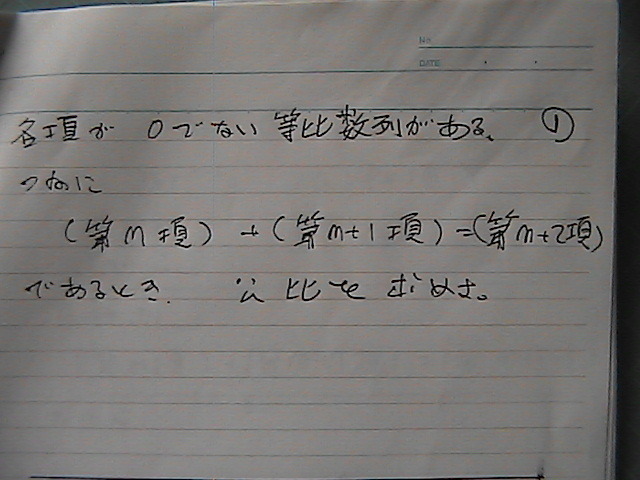 No
DATE ・ ・
各項が 0でない 等比数列がある。 ①
つねに
(第n項) + (第n+1項) = (第n+2項)
であるとき. 公比を求めよ。